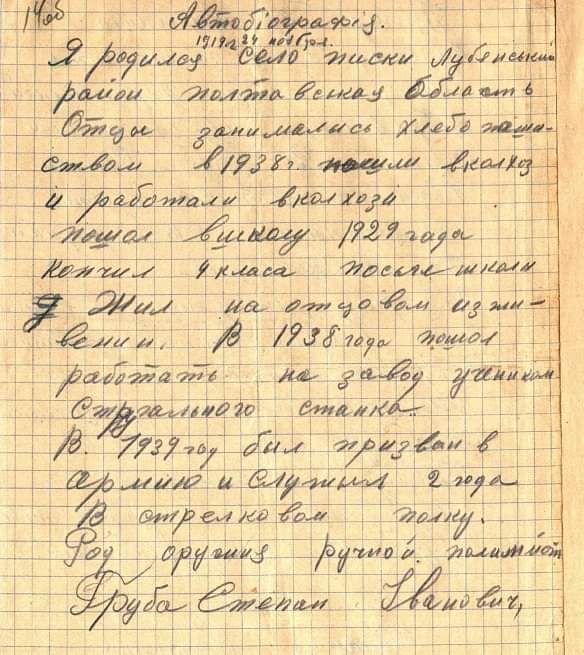 14об
Автобіографія.
1919г. 24 ноября.
Я родился село писки Лубенський
район полтавськая область
Отцы занимались хлебопаши-
ством в 1938г. пошли вколхоз
и работали вколхози
пошол вшколу 1929 года
кончил 4 класа посьле школи
Жил на отцовом изжи-
вении. В 1938 года пошол
работать на завод учеником
Стргального станка.
В. 1939 год был призван в
армию и служил 2 года
В стрелковом полку.
Род оружия ручной полимйот
Груба Степан Іванович,